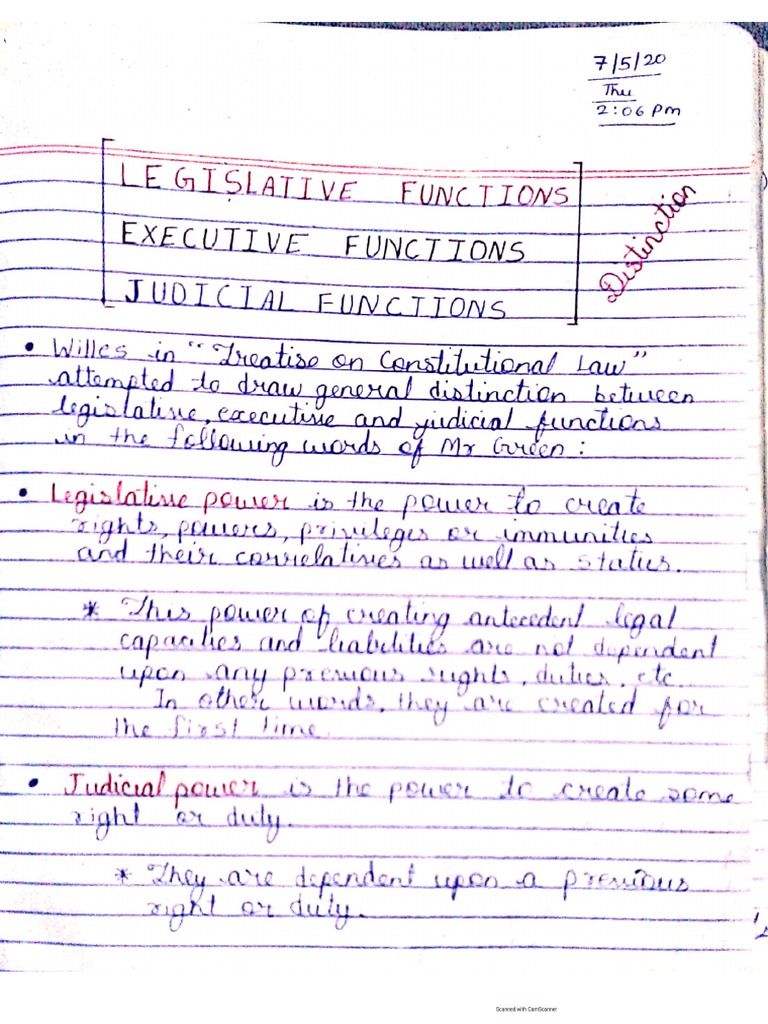 7/5/20
Thu
2:06 Pm
LEGISLATIVE FUNCTIONS
EXECUTIVE FUNCTIONS
JUDICIAL FUNCTIONS
Distinction
• Willes in "Treatise on Constitutional Law"
attempted to draw general distinction between
legislative, executive and judicial functions
in the following words of Mr Green :
• Legislative power is the power to create
rights, powers, privileges or immunities
and their correlatives as well as status.
* This power of creating antecedent legal
capacities and liabilities are not dependent
upon any previous rights, duties, etc.
In other words, they are created for
the first time.
• Judicial power is the power to create some
right or duty.
* They are dependent upon a previous
right or duty.
Scanned with CamScanner